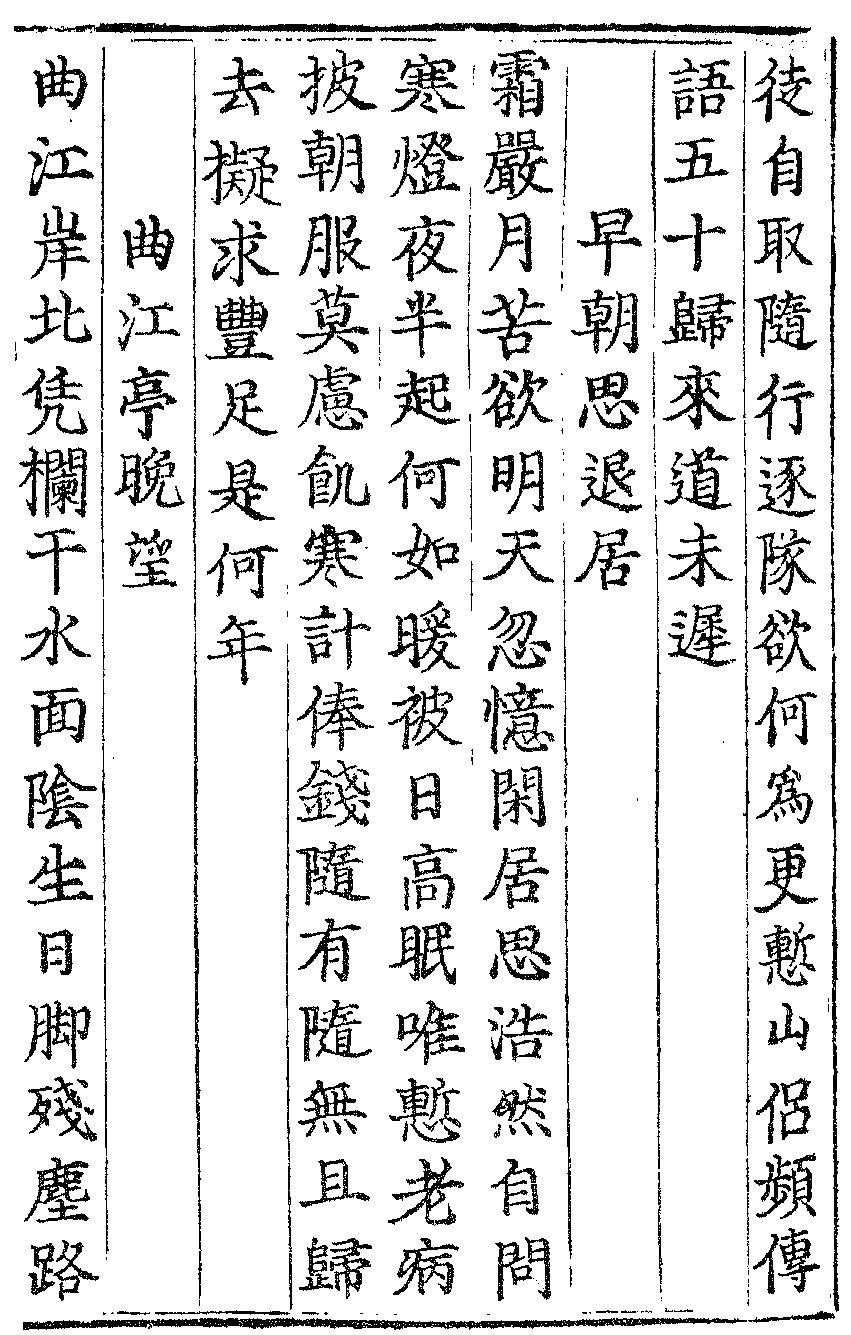 徒自取隨行逐隊欲何爲更慙山侶頻傳
語五十歸來道未遲
早朝思退居
霜嚴月苦欲明天忽憶閑居思浩然自問
寒燈夜半起何如暖被日高眠唯慙老病
披朝服莫慮飢寒計俸錢隨有隨無且歸
去擬求豐足是何年
曲江亭晚望
曲江岸北凭欄干水面陰生日脚殘塵路